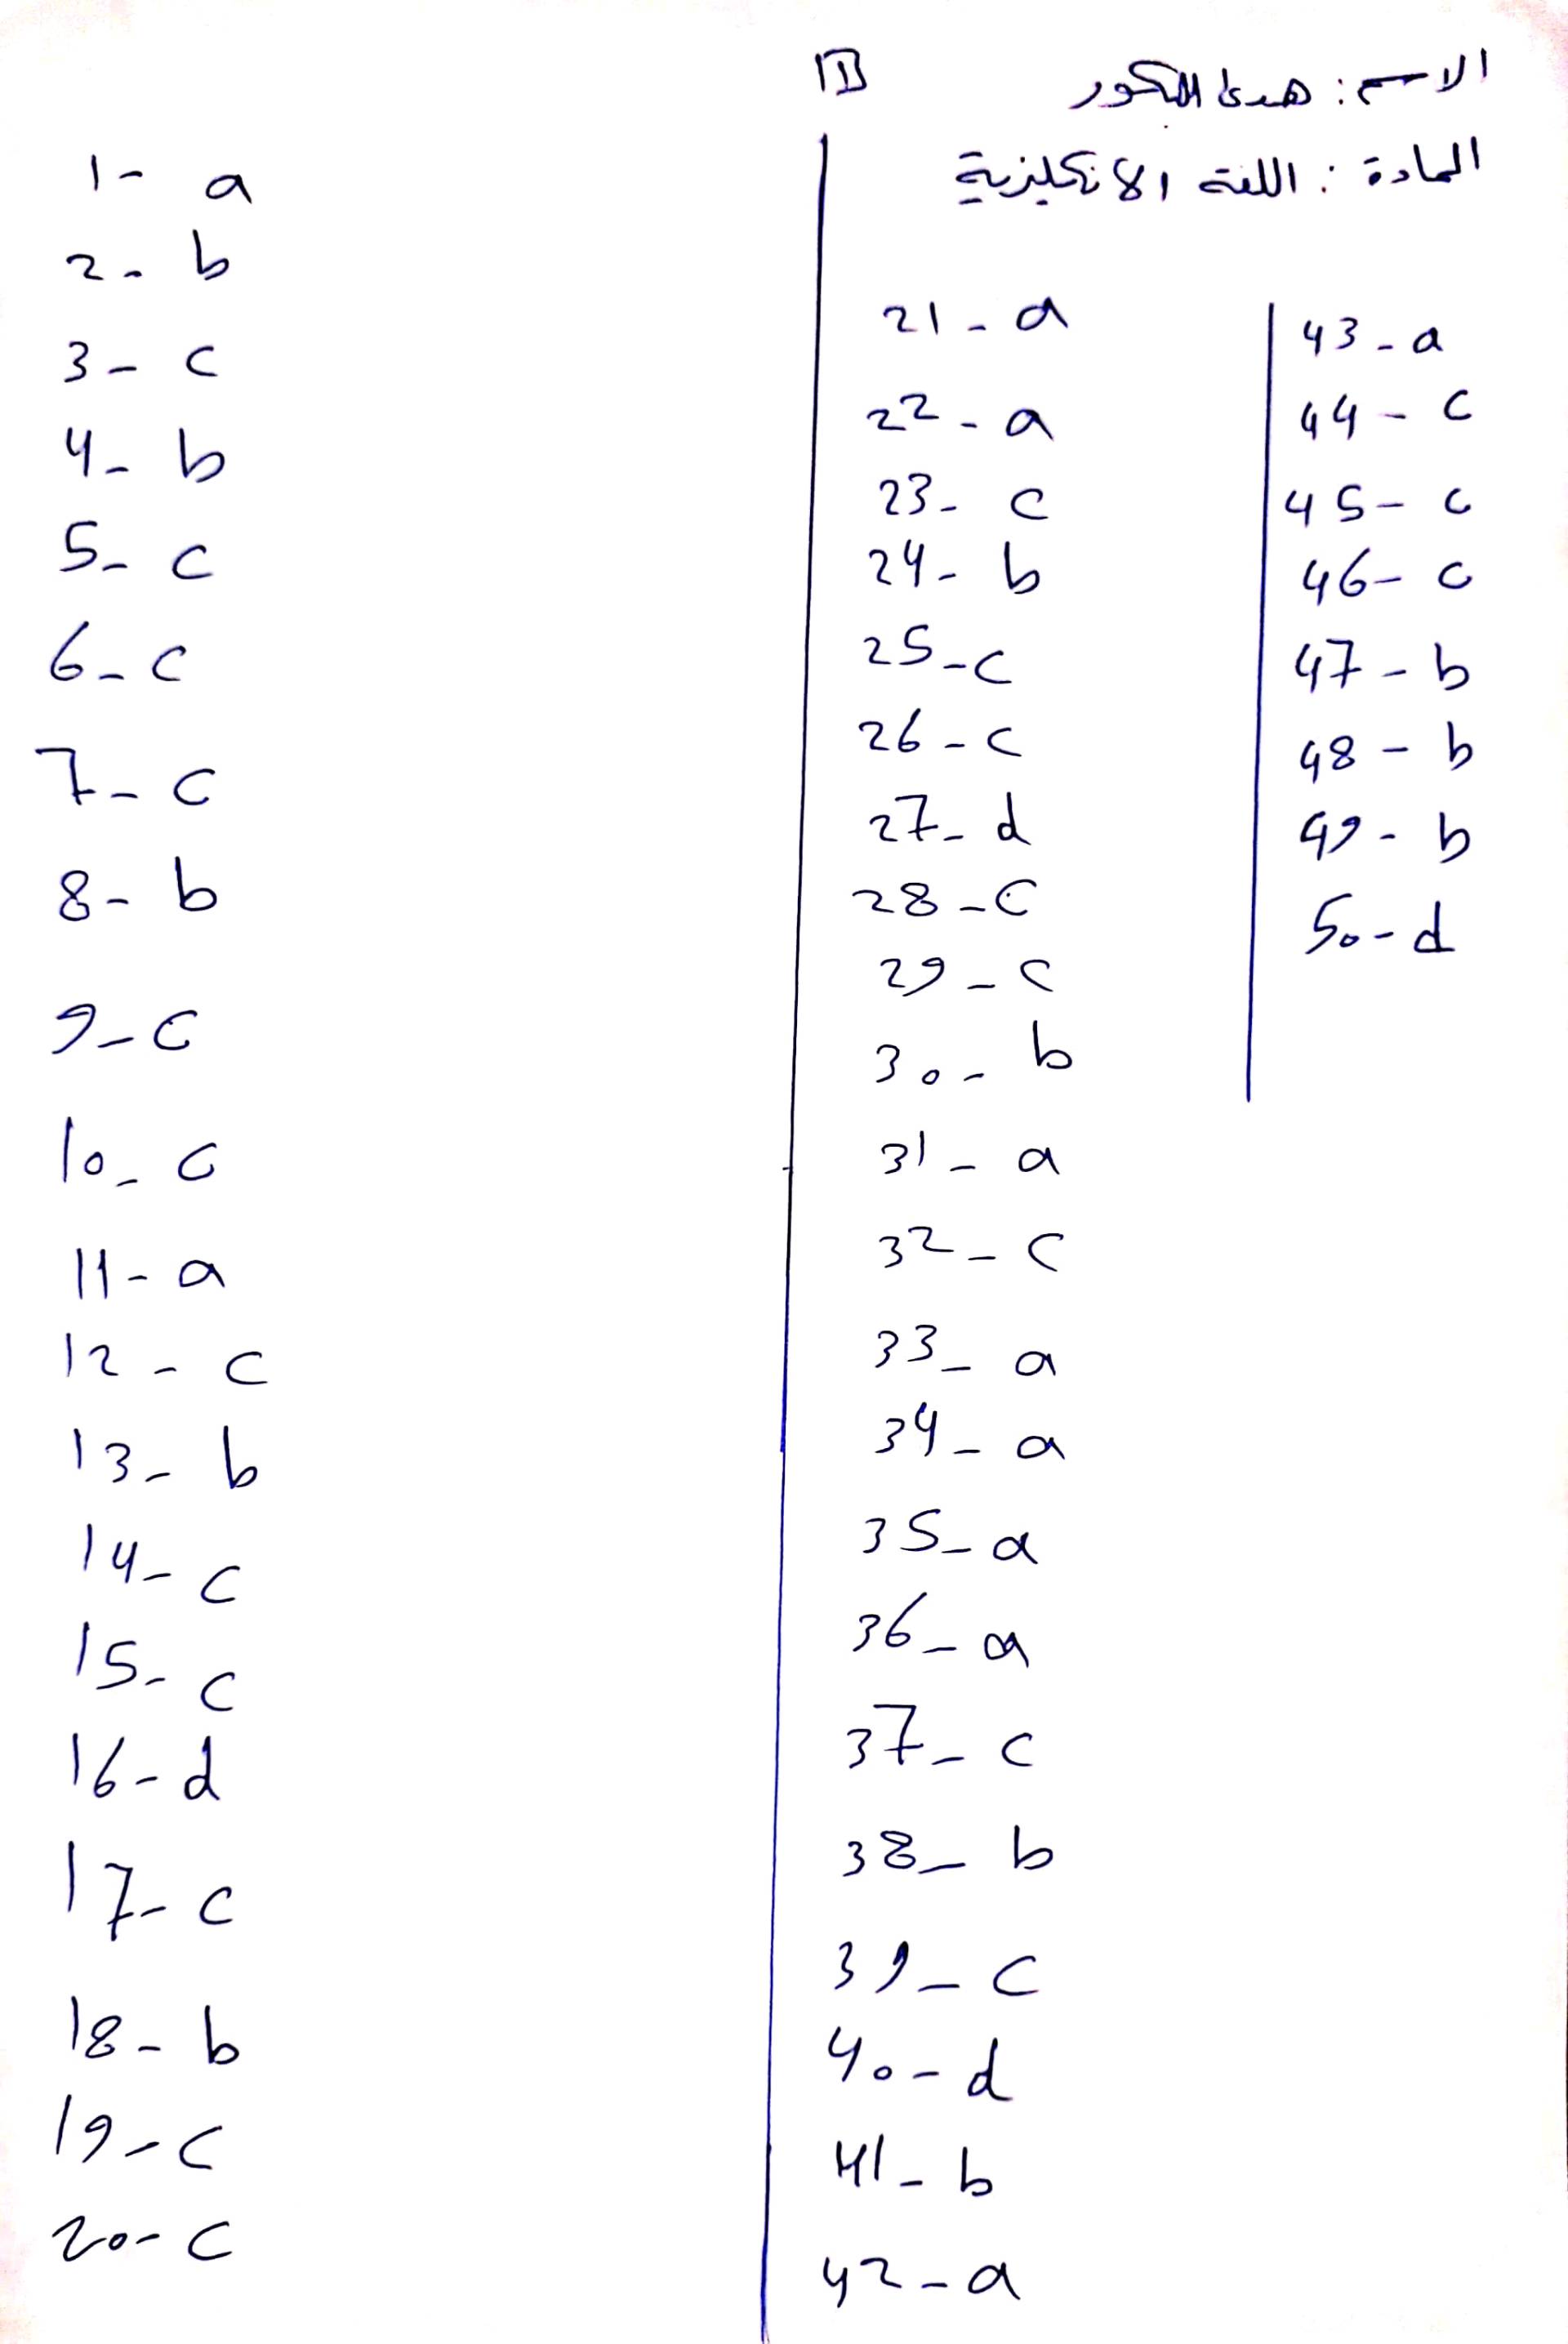 الاسم: هدى البكور
1
المادة: اللغة الانكليزية
1- a
2- b
3- c
4- b
5- c
6- c
7- c
8- b
9- c
10- c
11- a
12- c
13- b
14- c
15- c
16- d
17- c
18- b
19- c
20- c
21- a
22- a
23- c
24- b
25- c
26- c
27- d
28- c
29- c
30- b
31- a
32- c
33- a
34- a
35- a
36- a
37- c
38- b
39- c
40- d
41- b
42- a
43- a
44- c
45- c
46- c
47- b
48- b
49- b
50- d